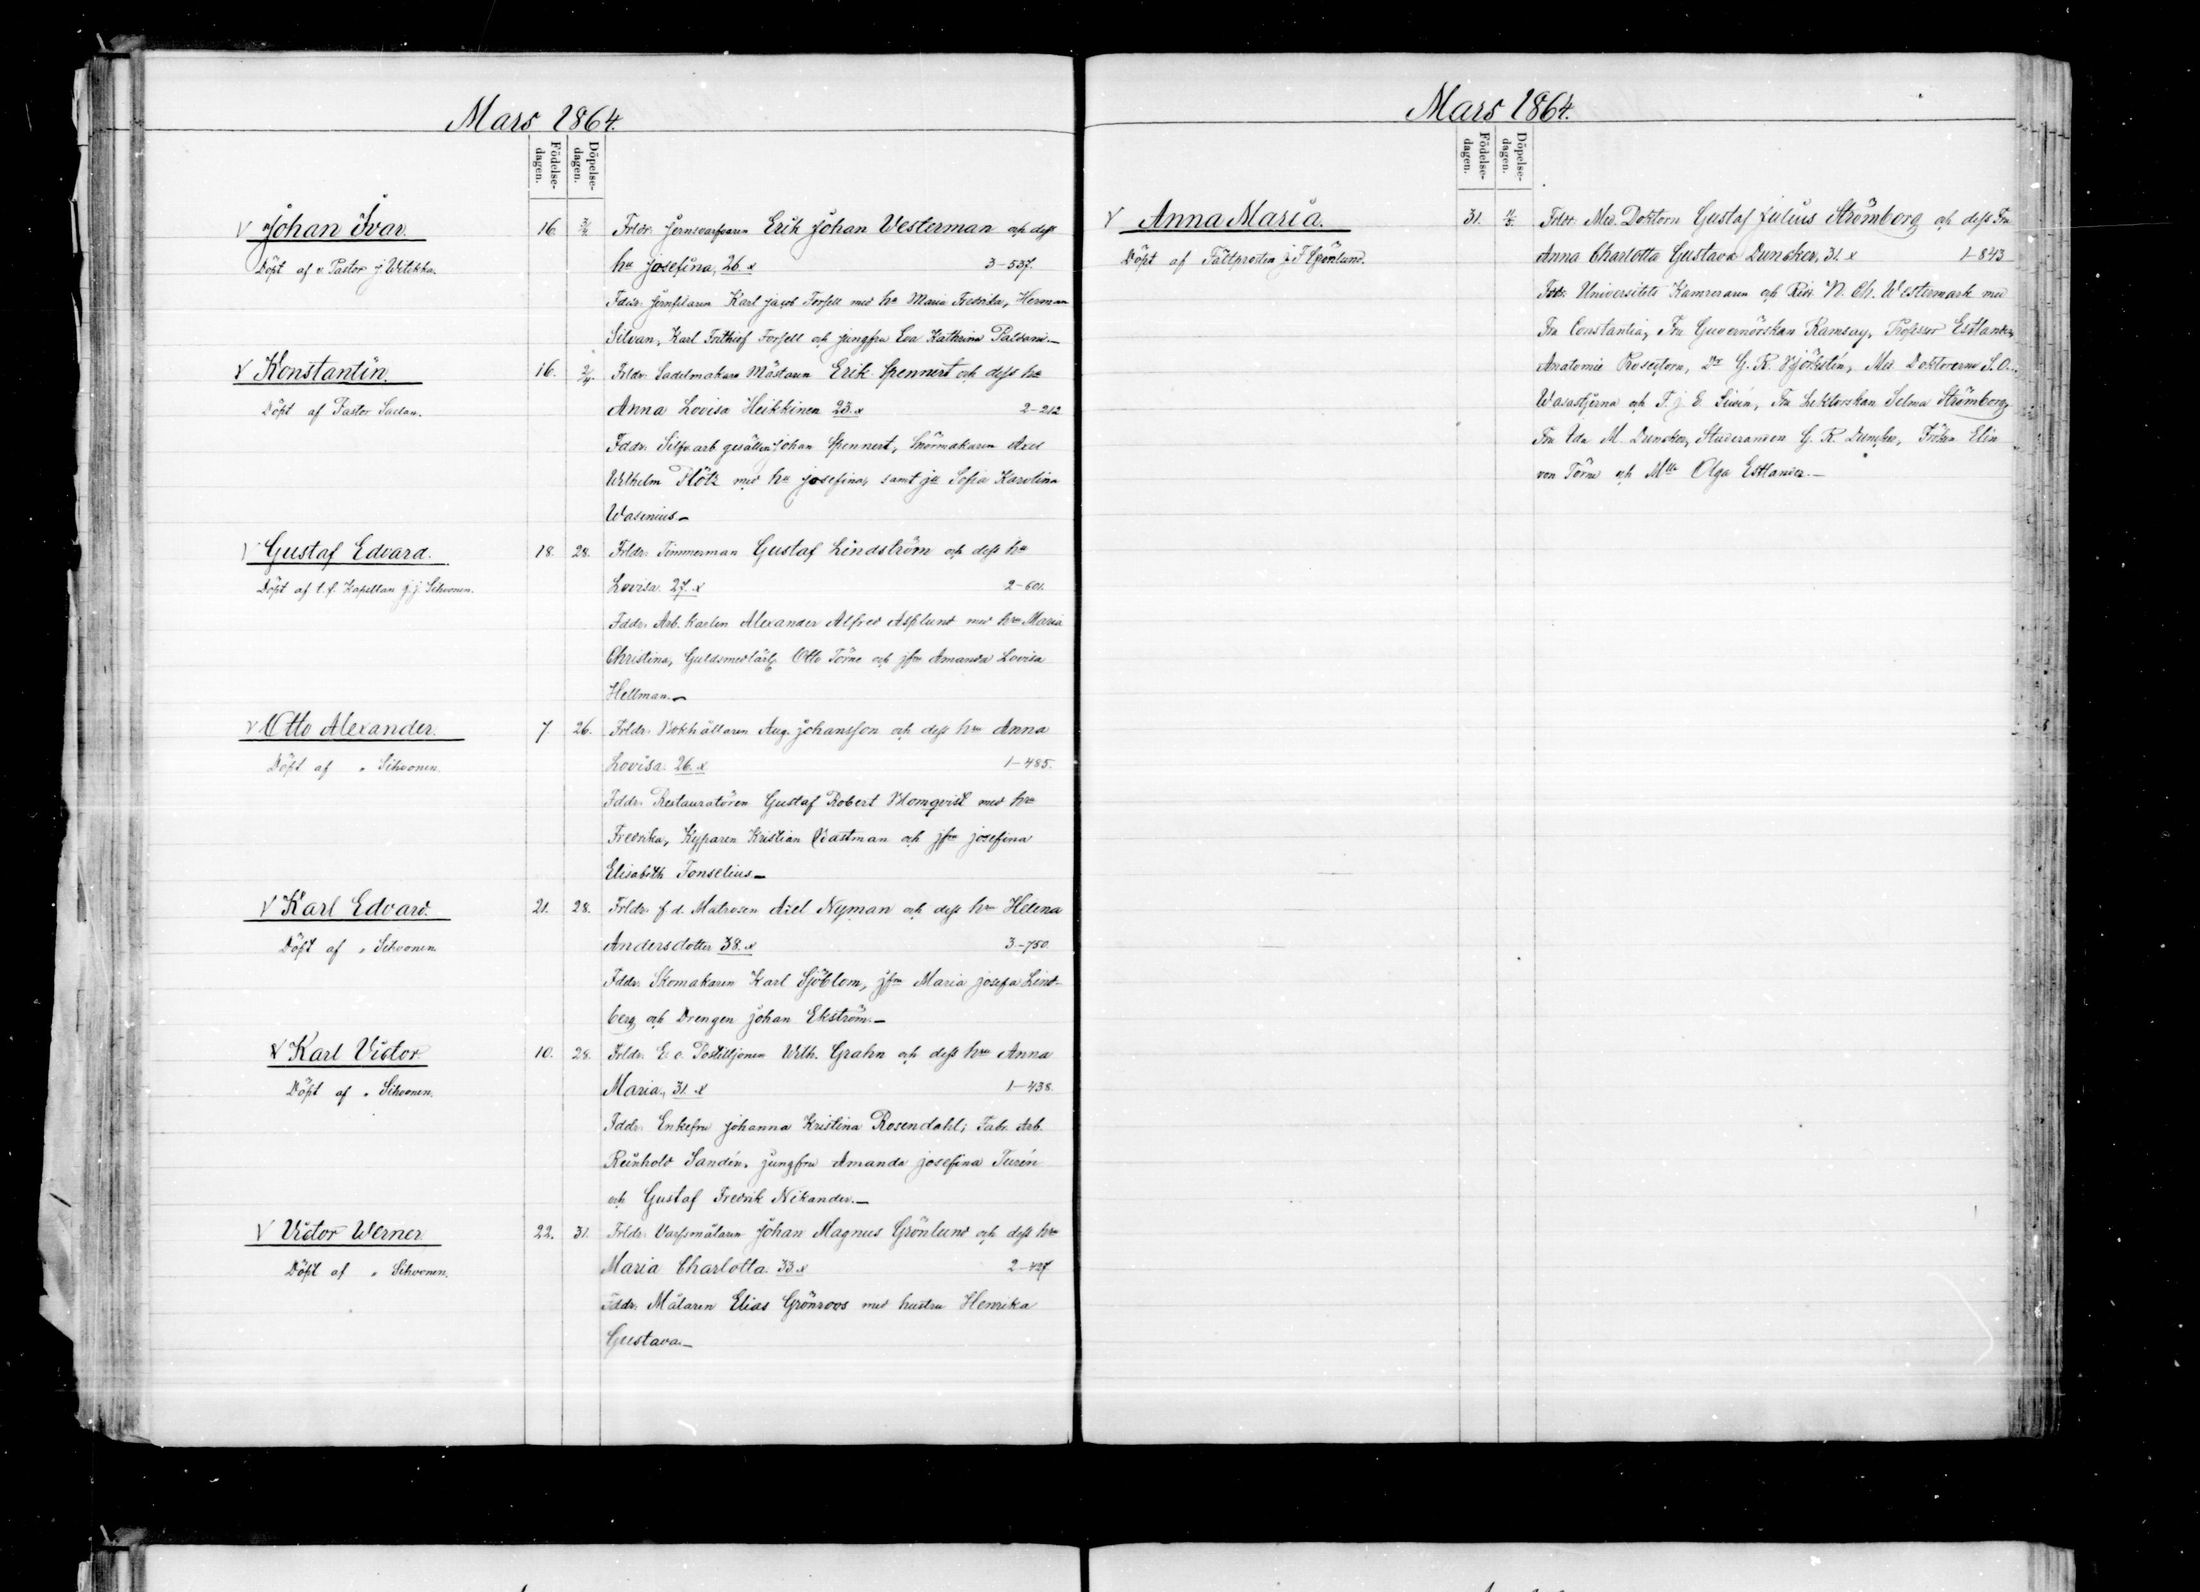 Mars 1864.
Födelse-dagen.
Döpelse-dagen.
Johan Ivar.
Döpt af v. Pastor J Witikka.
16.
3/4
Frldr. Jernsvarfvaren Erik Johan Westerman och dess
hu Josefina, 26. x 3-537.
Fddr. Jernfilaren Karl Jacob Forsell med hu Maria Fredrika, Herman
Silvan, Karl Frithief Forsell och jungfru Eva Kathrina Paldani.—
Konstantin.
Döpt af Pastor
16.
2/4.
Frldr. Sadelmakare Mästaren Erik Spennert och dess hu
Anna Lovisa Heikkinen 23. x 2-212
Fddr. Silfv. arb gesällen Johan Spennert, Snörmakaren Axel
Wilhelm Plötz med hu Josefina, samt Sofia Karolina
Wasenius—
Gustaf Edvard.
Döpt af t. f. Kapellan J. J. Sihvonen.
18.
28.
Frldr. Timmerman Gustaf Lindström och dess hu
Lovisa. 27. x 2-601.
Fddr. Arb. karlen Alexander Alfred Asplund med hru Maria
Christina, Guldsmedlärl. Otto Törne och jfru Amanda Lovisa
Hellman.—
Otto Alexander.
Döpt af " Sihvonen.
7.
26.
Frldr. Bokhållaren Aug. Johansson och dess hru Anna
Lovisa. 26. x 1-485.
Fddr. Restauratören Gustaf Robert Blomqvist med hru
Fredrika, Kyparen Kristian Bastman och jfru Josefina
Elisabeth Fonselius—
Karl Edvard.
Döpt af " Sihvonen.
21.
28.
Frldr. f. d. Matrosen Axel Nyman och dess hru Helena
Andersdotter 38. x 3-750.
Fddr. Skomakaren Karl Sjöblom, jfru Maria Josefa Lind-
berg och Drengen Johan Ekström.—
Karl Victor.
Döpt af " Sihvonen.
10.
28.
Frldr. E. o. Postiljonen Wilh. Grahn och dess hru Anna
Maria, 31. x 1-438.
Fddr. Enkefru Johanna Kristina Rosendahl; Fabr. Arb.
Reinhold Sandén, jungfru Amanda Josefina Turén
och Gustaf Fredrik Nikander.—
Victor Werner.
Döpt af " Sihvonen.
22.
31.
Frldr. Varfsmålaren Johan Magnus Grönlund och dess hru
Maria Charlotta. 33. x 2-427
Fddr. Målaren Elias Grönroos med hustru Henrika
Gustava.—
Mars 1864.
Födelse-dagen.
Döpelse-dagen.
Anna Maria.
Döpt af Fältprosten J F Grönlund.
31.
Frldr. Med. Doktorn Gustaf Julius Strömborg och dess Fru
Anna Charlotta Gustava Duncker, 31. x 1-843
Fddr. Universitets Kamreraren och Ridd. N. Ch. Westermark med
Fru Constantia, Fru Guvernörskan Ramsay, Professor Estlander,
Anatomie Prosectorn, Dr G. K. Björkstén, Med. Doktorerne S. O.
Wasastjerna och F. J. E. Sirén, Fru Lektorskan Selma Strömborg,
Fru Ida M. Duncker, Studeranden G. K. Duncker, Fröken Elin
von Törne och Mll Olga Estlander.—